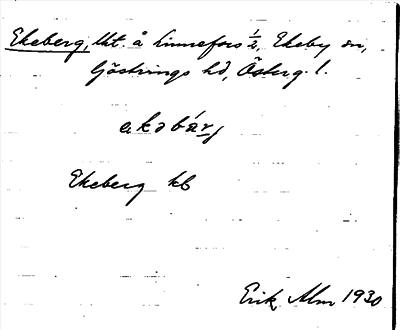 Ekeberg, lht. å Linnefors ½, Ekeby sn,
Göstrings hd, Österg. l.
ekəbär̨j
Ekeberg kb
Erik Alm 1930